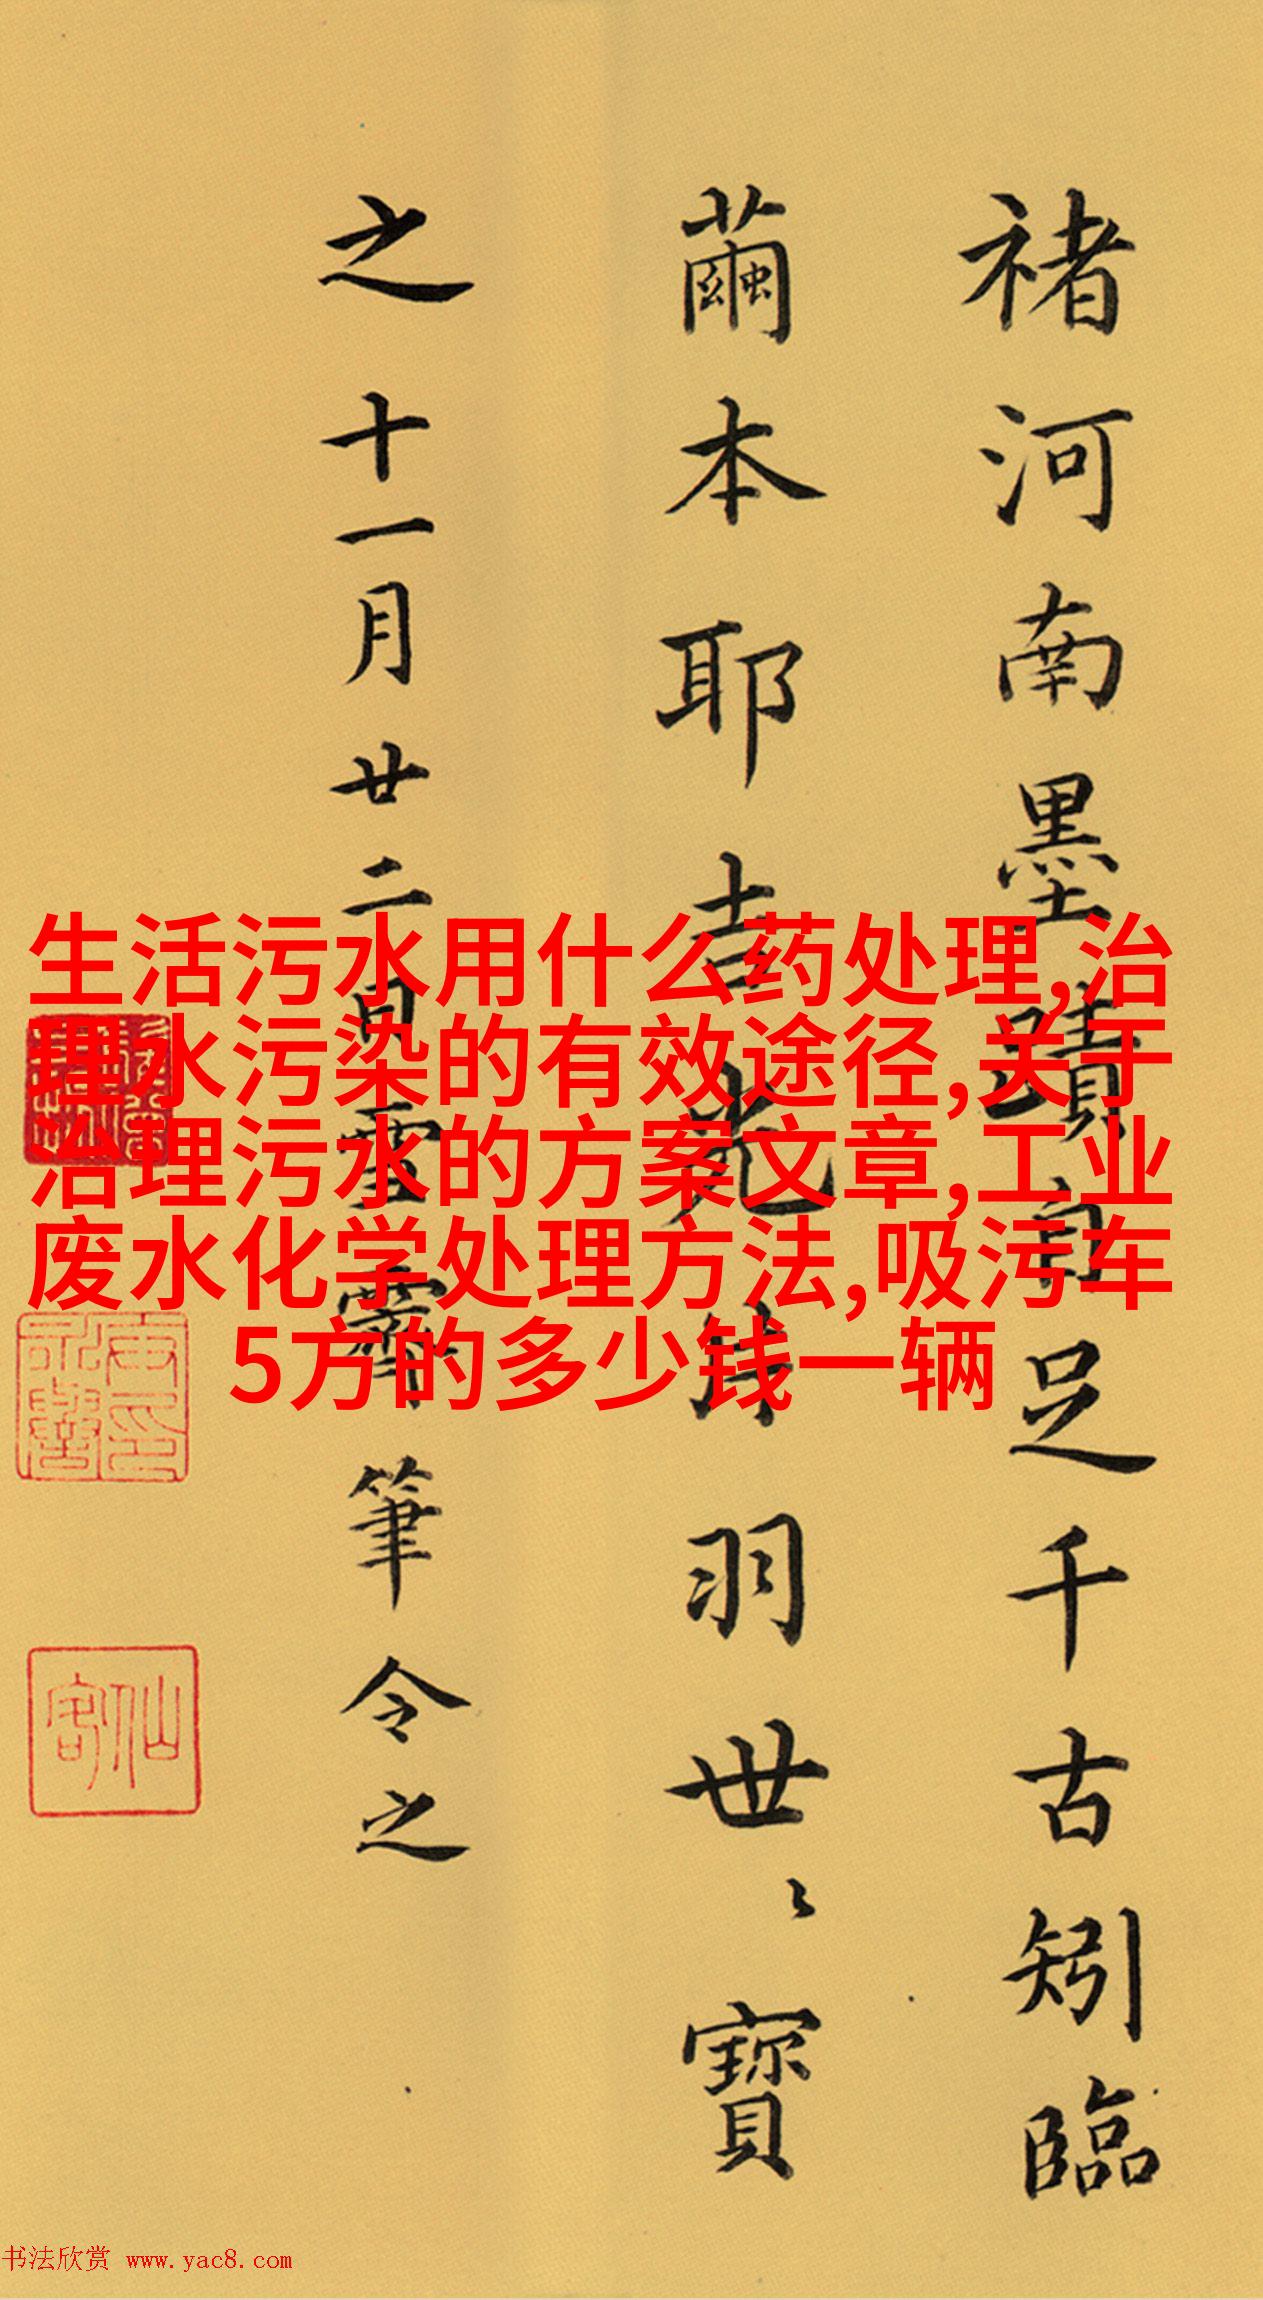 褚河南墨蹟自足千古矧臨
繭本耶吉光片羽世〻寶
之十一月廿二日雪霽筆令之
生活污水用什么药处理,治
理水污染的有效途径,关于
治理污水的方案文章,工业
废水化学处理方法,吸污车
5方的多少钱一辆
仙客
书法欣赏 www.yac8.com